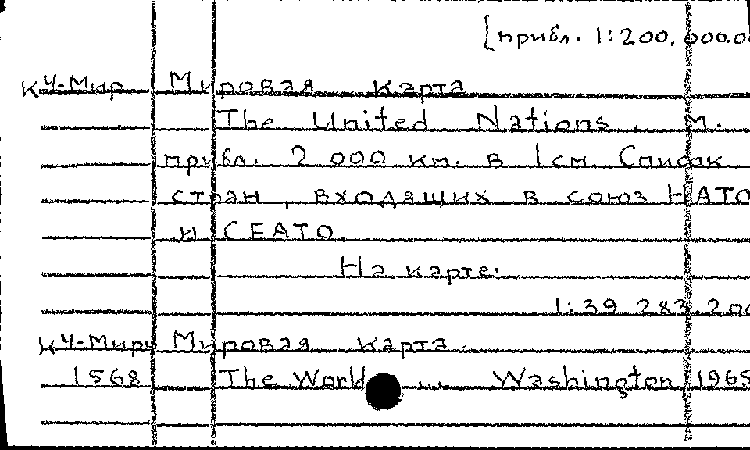 [прибл. 1:200,000.00
К4-Мир Мировая карта
The United Nations. М.
прибл. 2 000 км. в 1см Список
стран, входящих в союз НАТО
и СЕАТО.
На карте:
1:39 283 200
К4-Миры Мировая карта.
1568 The World ... Washington 1965